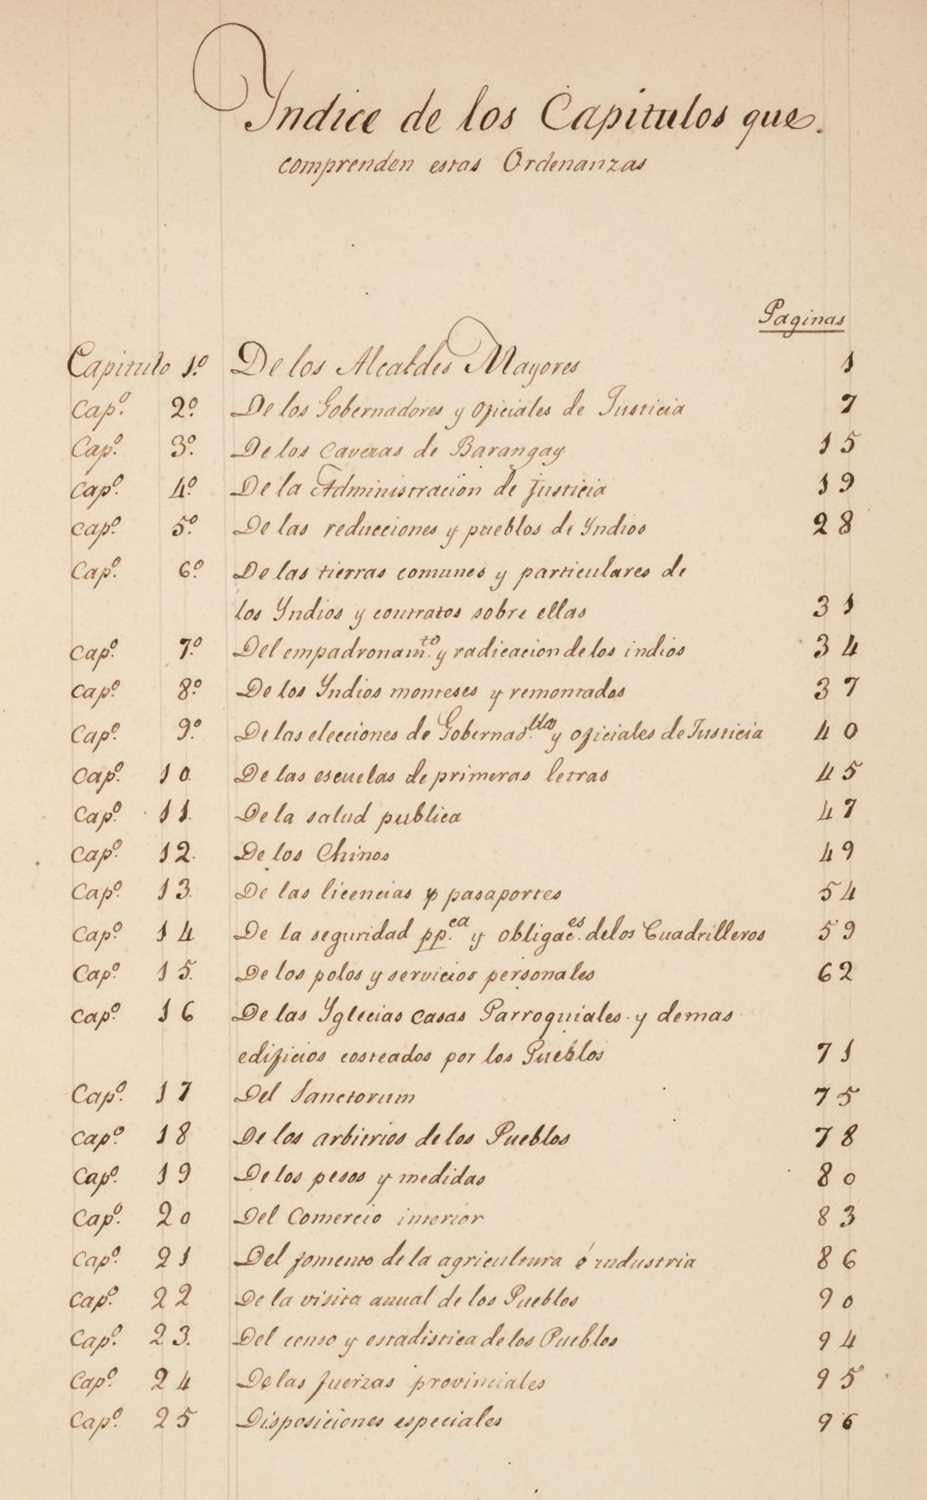 Yndice de los Capitulos que.
comprenden estas Ordenanzas
Paginas
Capitulo 1º. De los Alcaldes Mayores 1
Capº. 2º. De los Gobernadores y oficiales de Justicia 7
Capº. 3º. De los caveras de Barangay 15
Capº. 4º De la Administracion de justicia 19
Capº. 5º. De las reducciones y pueblos de Yndios 28
Capº. 6º. De las tierras comunes y particulares de
los Yndios y contratos sobre ellas 31
Capº. 7º. Del empadronamto. y radicacion de los indios 34
Capº. 8º. De los Yndios monteses y remontados 37
Capº. 9º. De las elecciones de y oficiales de Justicia 40
Capº. 10. De las escuelas de primeras letras 45
Capº. 11. De la salud publica 47
Capº. 12. De los Chinos 49
Capº. 13. De las licencias y pasaportes 54
Capº. 14 De la seguridad ppca. y obligaces. de los Cuadrilleros 59
Capº. 15. De los polos y servicios personales 62
Capº. 16 De las Yglecias casas Parroquiales y demas
edificios costeados por los Pueblos 71
Capº. 17 Del Sanctorum 75
Capº. 18 De los arbitrios de los Pueblos 78
Capº. 19 De los pesos y medidas 80
Capº. 20 Del Comercio interior 83
Capº. 21 Del fomento de la agricultura é industria 86
Capº. 22 De la visita anual de los Pueblos 90
Capº. 23. Del censo y estadistica de los Pueblos 94
Capº. 24 De las fuerzas provinciales 95
Capº. 25 Disposiciones especiales 96